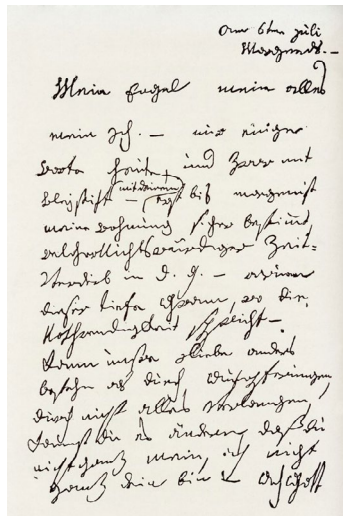 am 6ten Juli
Morgends. –
Mein Engel mein alles
mein Ich. – nur einige
Worte heute, und zwar mit
Bleystift – mit deinem
erst bis morgen ist
meine wohnung sicher bestimmt
welcher nichtswürdiger Zeit-
Verderb in d. g. – warum
dieser tiefe Gram, wo die
Nothwendigkeit spricht –
Kann unsre Liebe anders
bestehn als durch Aufopferungen,
durch nicht alles verlangen,
kannst du es ändern, daß du
nicht ganz mein, ich nicht
ganz dein bin –